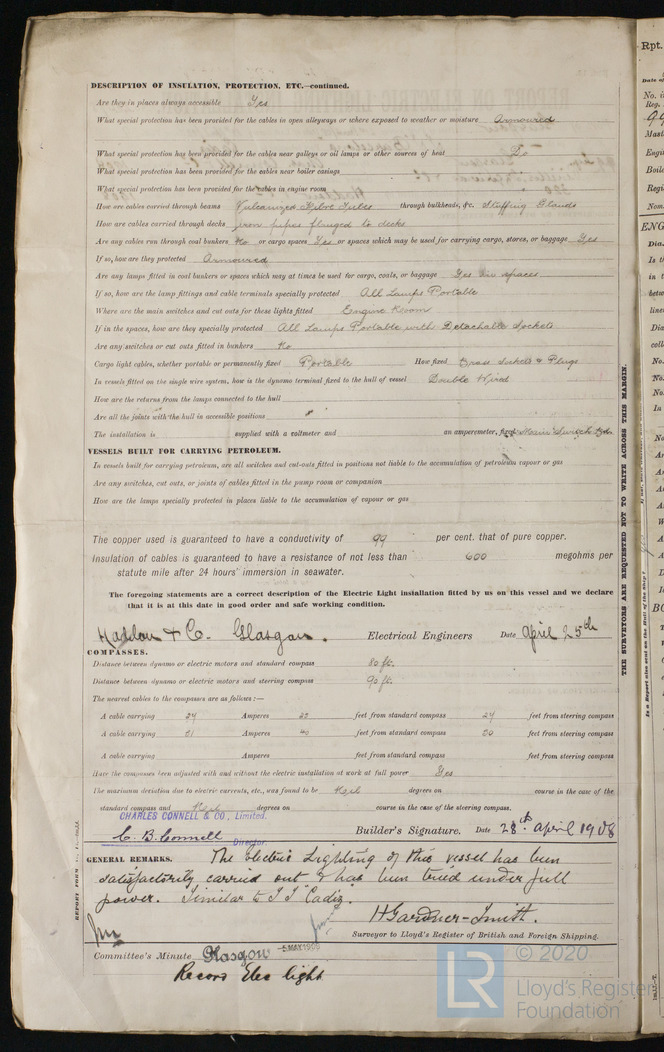 DESCRIPTION OF INSULATION, PROTECTION, ETC.—continued.
Are they in places always accessible Yes
What special protection has been provided for the cables in open alleyways or where exposed to weather or moisture Armoured
What special protection has been provided for the cables near galleys or oil lamps or other sources of heat Do
What special protection has been provided for the cables near boiler casings "
What special protection has been provided for the cables in engine room "
How are cables carried through beams Vulcanized Fibre Tubes through bulkheads, &c. Stuffing Glands
How are cables carried through decks iron pipes flanged to decks
Are any cables run through coal bunkers No or cargo spaces Yes or spaces which may be used for carrying cargo, stores, or baggage Yes
If so, how are they protected Armoured
Are any lamps fitted in coal bunkers or spaces which may at times be used for cargo, coals, or baggage Yes spaces
If so, how are the lamp fittings and cable terminals specially protected All Lamps Portable
Where are the main switches and cut outs for these lights fitted Engine Room
If in the spaces, how are they specially protected All Lamps Portable with Detachable Sockets
Are any switches or cut outs fitted in bunkers No
Cargo light cables, whether portable or permanently fixed Portable How fixed Brass Sockets & Plugs
In vessels fitted on the single wire system, how is the dynamo terminal fixed to the hull of vessel Double Wired
How are the returns from the lamps connected to the hull
Are all the joints with the hull in accessible positions "
The installation is supplied with a voltmeter and an amperemeter, fixed Main Switch Bd
VESSELS BUILT FOR CARRYING PETROLEUM.
In vessels built for carrying petroleum, are all switches and cut-outs fitted in positions not liable to the accumulation of petroleum vapour or gas
Are any switches, cut outs, or joints of cables fitted in the pump room or companion
How are the lamps specially protected in places liable to the accumulation of vapour or gas
The copper used is guaranteed to have a conductivity of 99 per cent. that of pure copper.
Insulation of cables is guaranteed to have a resistance of not less than 600 megohms per
statute mile after 24 hours' immersion in seawater.
The foregoing statements are a correct description of the Electric Light installation fitted by us on this vessel and we declare
that it is at this date in good order and safe working condition.
& Co. Glasgow. Electrical Engineers Date April 25th
COMPASSES.
Distance between dynamo or electric motors and standard compass 80 ft.
Distance between dynamo or electric motors and steering compass 90 ft.
The nearest cables to the compasses are as follows:—
A cable carrying Amperes feet from standard compass feet from steering compass
A cable carrying Amperes 40 feet from standard compass feet from steering compass
A cable carrying Amperes feet from standard compass feet from steering compass
Have the compasses been adjusted with and without the electric installation at work at full power Yes
The maximum deviation due to electric currents, etc., was found to be Nil degrees on course in the case of the
standard compass and Nil degrees on course in the case of the steering compass.
CHARLES CONNELL & CO, Limited.
C. B. Connell Director. Builder's Signature. Date 28th April 1908
GENERAL REMARKS. The Electric Lighting of this vessel has been
satisfactorily carried out & has been tried under full
power. Similar to S S "Cadiz".
H Gardner-Smith.
Surveyor to Lloyd's Register of British and Foreign Shipping.
Committee's Minute Glasgow 5 MAY 1908
Record Elec light
THE SURVEYORS ARE REQUESTED NOT TO WRITE ACROSS THIS MARGIN.
© 2020
LR
Lloyd's Register
Foundation
Rpt.